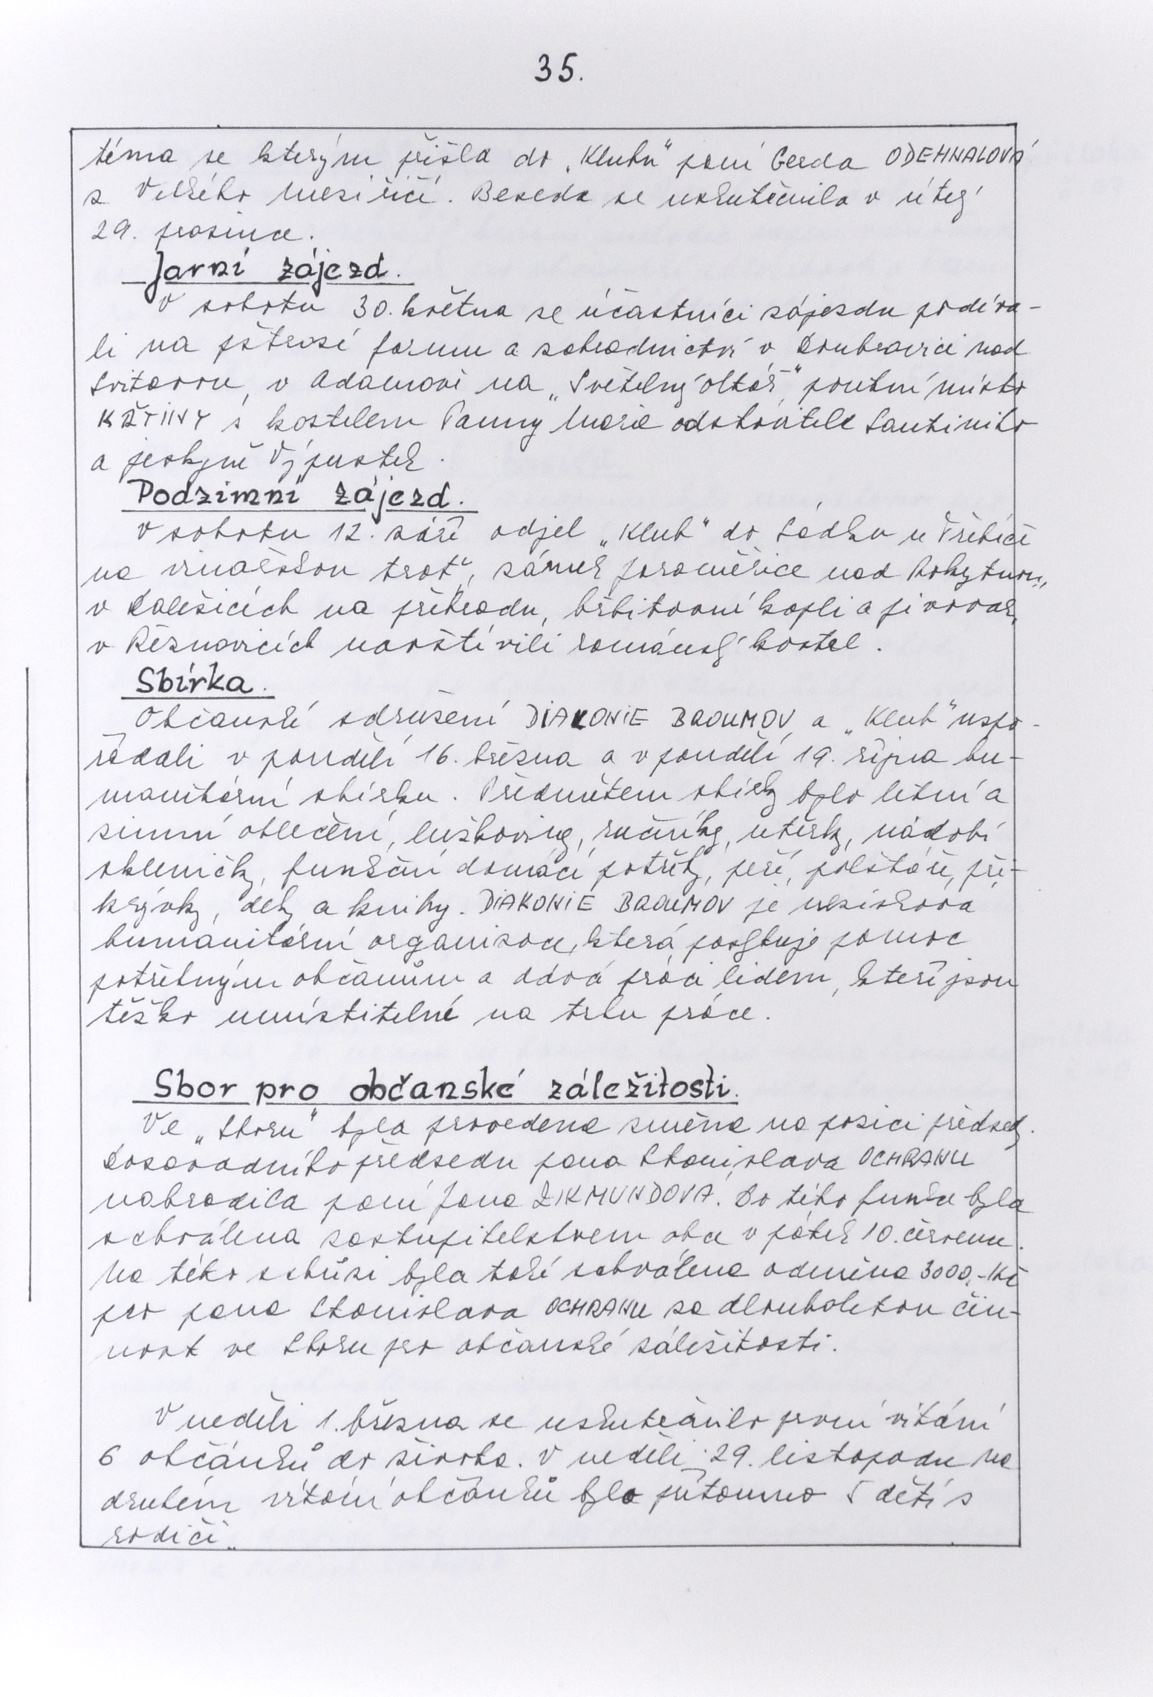 35.
téma se kterým přišla do „Klubu" paní Gerda ODEHNALOVÁ
z Velkého Meziříčí. Beseda se uskutečnila v úterý
29. prosince.
Jarní zájezd.
V sobotu 30. května se účastníci zájezdu podíva-
li na pštrosí farmu a zahradnictví v Doubravici nad
Svitavou, v Adamově na „Světelný oltář", poutní místo
KŘTINY s kostelem Panny Marie od stavitele Santiniho
a jeskyně Výpustek.
Podzimní zájezd.
V sobotu 12. září odjel „Klub" do Sádku u Třebíče
na vinařskou trať, zámek Jaroměřice nad Rokytnou,
v Dalešicích na přehradu, hřbitovní kapli a pivovar,
v Řeznovicích navštívili románský kostel.
Sbírka.
Občanské sdružení DIAKONIE BROUMOV a „Klub" uspo-
řádali v pondělí 16. března a v pondělí 19. října hu-
manitární sbírku. Předmětem sbírky bylo letní a
zimní oblečení, lůžkoviny, ručníky, utěrky, nádobí
skleničky, funkční domácí potřeby, peří, polštáře, při-
krývky, deky a knihy. DIAKONIE BROUMOV je nezisková
humanitární organizace, která poskytuje pomoc
potřebným občanům a dává práci lidem, kteří jsou
těžko umístitelné na trhu práce.
Sbor pro občanské záležitosti.
Ve „Sboru" byla provedena změna na pozici předsedy.
Dosavadního předsedu pana Stanislava OCHRANU
nahradila paní Jana ZIKMUNDOVÁ. Do této funkce byla
schválena zastupitelstvem obce v pátek 10. června.
Na této schůzi byla také schválena odměna 3000,- Kč
pro pana Stanislava OCHRANU za dlouholetou čin-
nost ve Sboru pro občanské záležitosti.
V neděli 1. března se uskutečnilo první vítání
6 občánků do života. V neděli 29. listopadu na
druhém vítání občánků bylo přítomno 5 dětí s
rodiči.